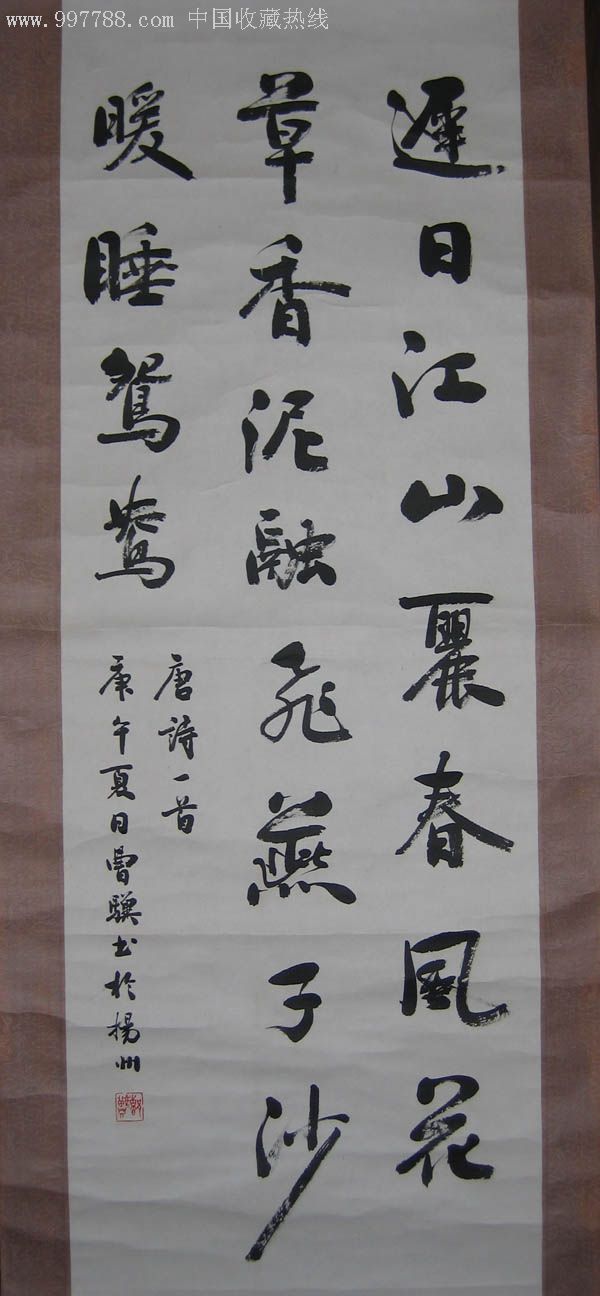 www.997788.com 中国收藏热线
遲日江山麗春風花
草香泥融飛燕子沙
暖睡鴛鴦
唐詩一首
庚午夏日曾騤书於揚州